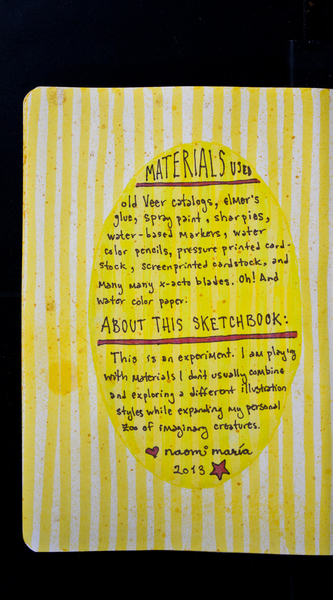 MATERIALS USED
old Veer catalogs, elmer's
glue, spray paint, sharpies,
water-based markers, water
color pencils, pressure printed card-
stock, screenprinted cardstock, and
many many x-acto blades. Oh! And
water color paper.
ABOUT THIS SKETCHBOOK:
This is an experiment. I am playing
with materials I don't usually combine
and exploring a different illustration
styles while expanding my personal
zoo of imaginary creatures.
naomi maría
2013